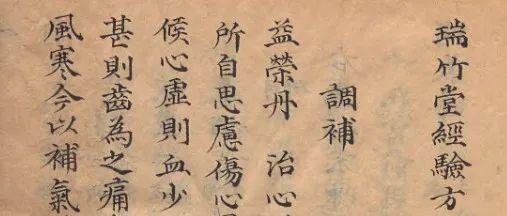 瑞竹堂經驗方
調補
益榮丹 治心
所自思慮傷心
候心虛則血少
甚則齒為之痛
風寒今以補氣